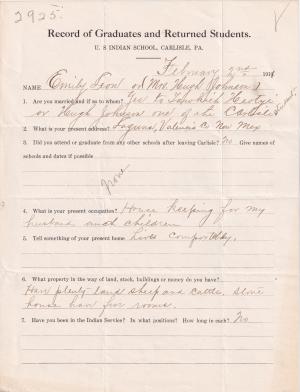 2925.
Record of Graduates and Returned Students.
U. S INDIAN SCHOOL, CARLISLE, PA.
February 2nd 191
NAME Emily Leon or Mrs. Hugh Johnson)
1. Are you married and if so to whom? Yes to
or Hugh Johnson one of the Carlisle Student.
2. What is your present address? Laguna, Valencia Co New Mex
3. Did you attend or graduate from any other schools after leaving Carlisle? No Give names of
schools and dates if possible
None
4. What is your present occupation? House keeping for my
husband and children
5. Tell something of your present home Lives Comfortably.
6. What property in the way of land, stock, buildings or money do you have?
Have plenty land sheep and cattle, stone
house have five rooms.
7. Have you been in the Indian Service? In what positions? How long in each? No